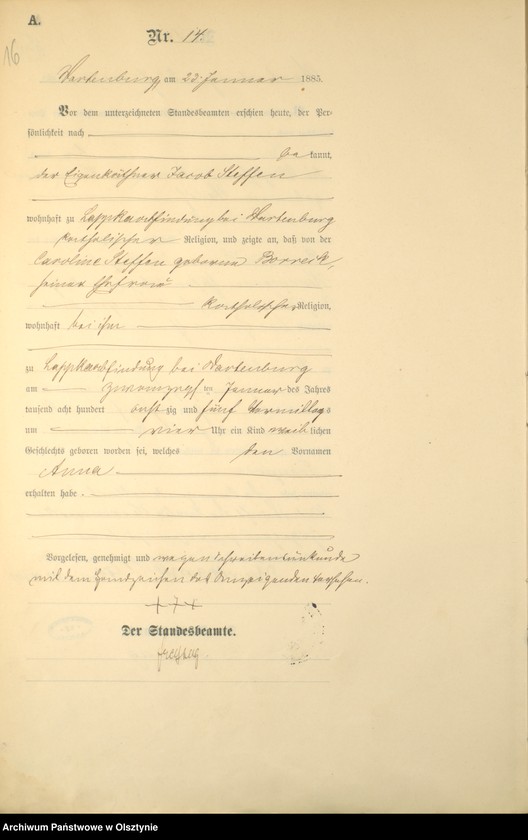 A.
Nr. 14.
16
Wartenburg, am 22 Januar 1885.
Vor dem unterzeichneten Standesbeamten erschien heute, der Per-
sönlichkeit nach
be kannt,
der Eigenkäthner Jacob Steffen
wohnhaft zu Lapkaabfindung bei Wartenburg
katholischer Religion, und zeigte an, daß von der
Caroline Steffen geborene
seiner Ehefrau
katholischer Religion,
wohnhaft bei ihm
zu Lapkaabfindung bei Wartenburg
am ten Januar des Jahres
tausend acht hundert acht zig und fünf Vormittags
um vier Uhr ein Kind weib lichen
Geschlechts geboren worden sei, welches den Vornamen
Anna
erhalten habe.
Vorgelesen, genehmigt und wegen Schreibensunkunde
mit dem Handzeichen des Anzeigenden versehen.
+ + +
Der Standesbeamte.
Archiwum Państwowe w Olsztynie